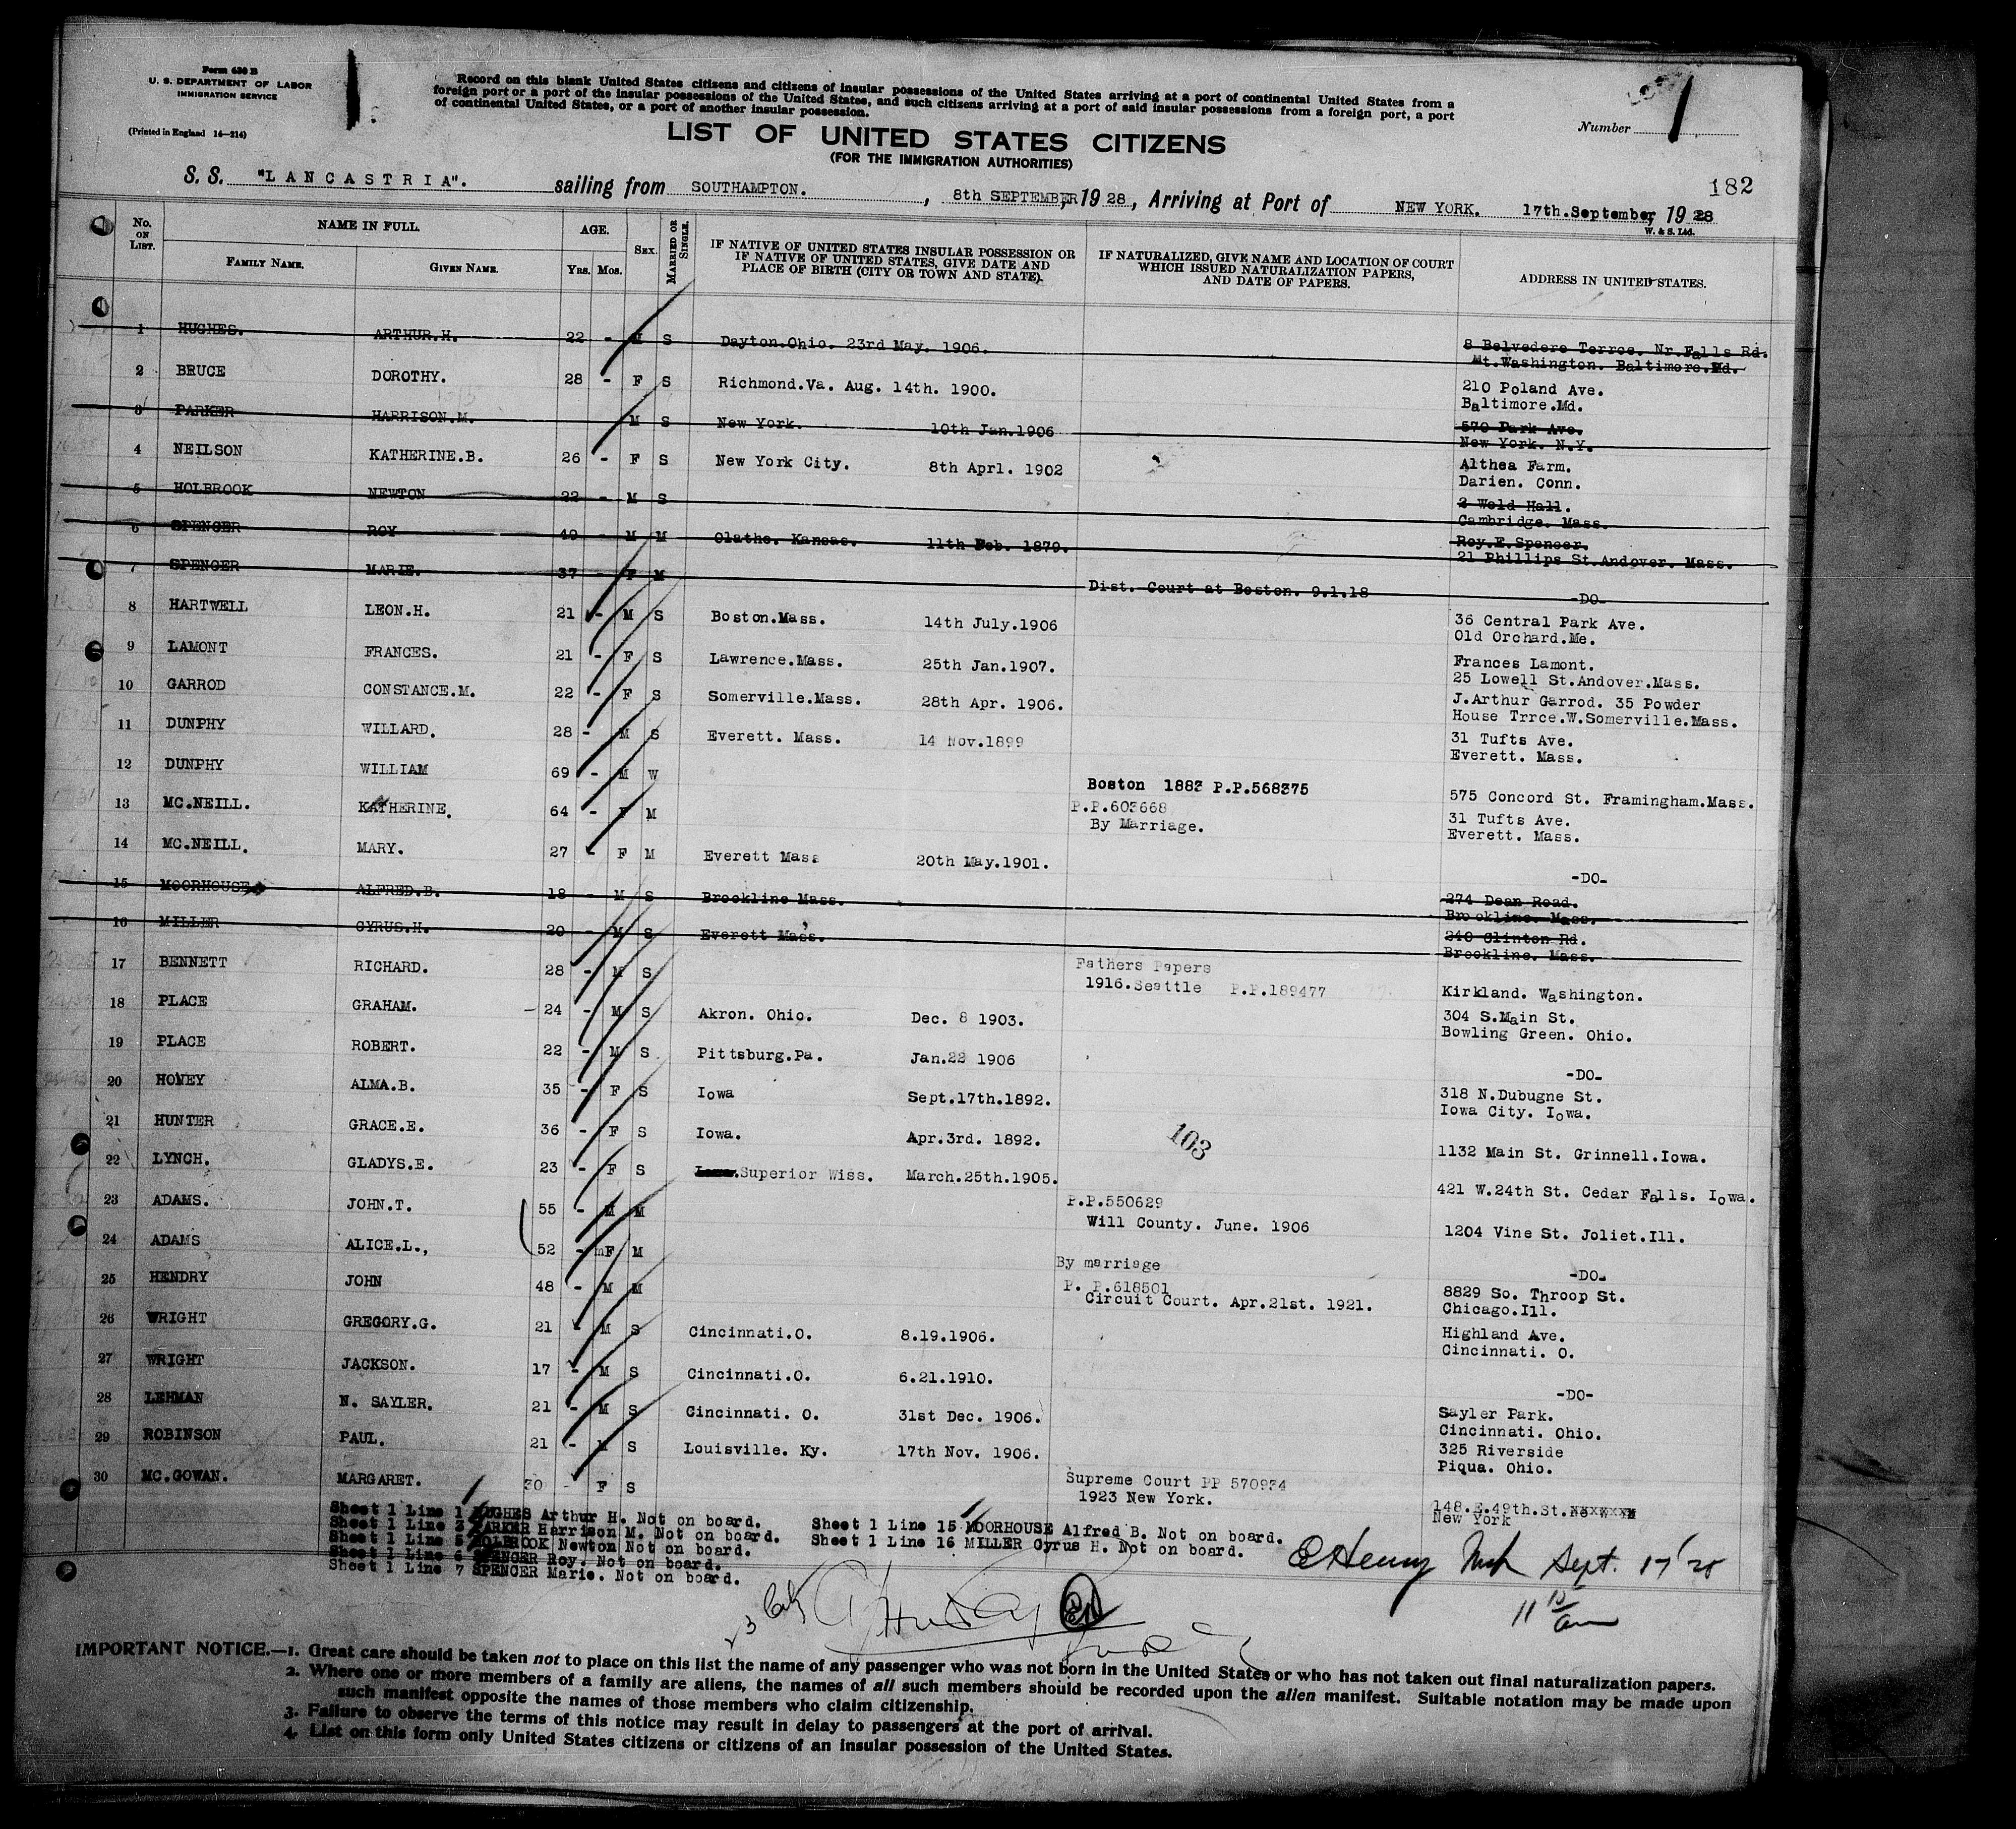 Form 630 B
U. S. DEPARTMENT OF LABOR
IMMIGRATION SERVICE
(Printed in England 14—214)
Record on this blank United States citizens and citizens of insular possessions of the United States arriving at a port of continental United States from a
foreign port or a port of the insular possessions of the United States, and such citizens arriving at a port of said insular possessions from a foreign port, a port
of continental United States, or a port of another insular possession.
LIST OF UNITED STATES CITIZENS
(FOR THE IMMIGRATION AUTHORITIES)
Number 1
182
S. S. "LANCASTRIA". sailing from SOUTHAMPTON. , 8th SEPTEMBER, 19 28, Arriving at Port of NEW YORK. 17th.September, 19 28
W. & S. Ltd.
No. ON LIST. NAME IN FULL. FAMILY NAME. GIVEN NAME. AGE. YRS. MOS. SEX. MARRIED OR SINGLE.
IF NATIVE OF UNITED STATES INSULAR POSSESSION OR
IF NATIVE OF UNITED STATES, GIVE DATE AND
PLACE OF BIRTH (CITY OR TOWN AND STATE).
IF NATURALIZED, GIVE NAME AND LOCATION OF COURT
WHICH ISSUED NATURALIZATION PAPERS,
AND DATE OF PAPERS.
ADDRESS IN UNITED STATES.
1 HUGHES. ARTHUR.H. 22 - M S Dayton.Ohio. 23rd May. 1906. 8 Belvedere Terrce. Nr.Falls Rd.
Mt.Washington. Baltimore.Md.
2 BRUCE DOROTHY. 28 - F S Richmond.Va. Aug. 14th. 1900. 210 Poland Ave.
Baltimore.Md.
3 PARKER HARRISON.M. M S New York. 10th Jan.1906 570 Park Ave.
New York. N.Y.
4 NEILSON KATHERINE.B. 26 - F S New York City. 8th Aprl. 1902 Althea Farm.
Darien. Conn.
5 HOLBROOK NEWTON 22 - M S 2 Weld Hall.
Cambridge. Mass.
6 SPENCER ROY 49 - M M Olathe. Kansas. 11th Feb. 1879. Roy.E.Spencer.
21 Phillips St.Andover. Mass.
7 SPENCER MARIE. 37 - F M Dist. Court at Boston. 9.1.18 -DO-
8 HARTWELL LEON.H. 21 - M S Boston.Mass. 14th July.1906 36 Central Park Ave.
Old Orchard.Me.
9 LAMONT FRANCES. 21 - F S Lawrence.Mass. 25th Jan.1907. Frances Lamont.
25 Lowell St.Andover.Mass.
10 GARROD CONSTANCE.M. 22 - F S Somerville.Mass. 28th Apr. 1906. J.Arthur Garrod. 35 Powder
House Trrce.W.Somerville.Mass.
11 DUNPHY WILLARD. 28 - M S Everett. Mass. 14 Nov.1899 31 Tufts Ave.
Everett. Mass.
12 DUNPHY WILLIAM 69 - M W Boston 1883 P.P.568375 575 Concord St. Framingham.Mass.
13 MC.NEILL. KATHERINE. 64 - F M P.P.603668
By Marriage. 31 Tufts Ave.
Everett. Mass.
14 MC.NEILL. MARY. 27 - F M Everett Mass 20th May.1901. -DO-
15 MOORHOUSE ALFRED.B. 18 - M S Brookline Mass. 274 Dean Road.
Brookline. Mass.
16 MILLER CYRUS.H. 20 - M S Everett Mass. 240 Clinton Rd.
Brookline. Mass.
17 BENNETT RICHARD. 28 - M S Fathers Papers
1916.Seattle P.P.189477 Kirkland. Washington.
18 PLACE GRAHAM. 24 - M S Akron. Ohio. Dec. 8 1903. 304 S.Main St.
Bowling Green. Ohio.
19 PLACE ROBERT. 22 - M S Pittsburg.Pa. Jan.22 1906 -DO-
20 HONEY ALMA.B. 35 - F S Iowa Sept.17th.1892. 318 N.Dubugne St.
Iowa City. Iowa.
21 HUNTER GRACE.E. 36 - F S Iowa. Apr.3rd. 1892. 1132 Main St. Grinnell.Iowa.
103
22 LYNCH. GLADYS.E. 23 - F S Iowa.Superior Wiss. March.25th.1905. 421 W.24th St. Cedar Falls. Iowa.
23 ADAMS. JOHN.T. 55 - M M P.P.550629
Will County. June. 1906 1204 Vine St. Joliet.Ill.
24 ADAMS ALICE.L., 52 - mF M By marriage -DO-
25 HENDRY JOHN 48 - M M P. P.618501
Circuit Court. Apr.21st. 1921. 8829 So. Throop St.
Chicago.Ill.
26 WRIGHT GREGORY.G. 21 - M S Cincinnati.O. 8.19.1906. Highland Ave.
Cincinnati. O.
27 WRIGHT JACKSON. 17 - M S Cincinnati.O. 6.21.1910. -DO-
28 LEHMAN N. SAYLER. 21 - M S Cincinnati. O. 31st Dec. 1906. Sayler Park.
Cincinnati. Ohio.
29 ROBINSON PAUL. 21 - M S Louisville. Ky. 17th Nov. 1906. 325 Riverside
Piqua. Ohio.
30 MC.GOWAN. MARGARET. 30 - F S Supreme Court PP 570934
1923 New York. 148.E.49th.St.
New York
Sheet 1 Line 1 HUGHES Arthur H. Not on board.
Sheet 1 Line 3 PARKER Harrison M. Not on board.
Sheet 1 Line 5 HOLBROOK Newton Not on board.
Sheet 1 Line 6 SPENCER Roy. Not on board.
Sheet 1 Line 7 SPENCER Marie. Not on board.
Sheet 1 Line 15 MOORHOUSE Alfred B. Not on board.
Sheet 1 Line 16 MILLER Cyrus H. Not on board.
Sept. 17
11 15 am
IMPORTANT NOTICE.—1. Great care should be taken not to place on this list the name of any passenger who was not born in the United States or who has not taken out final naturalization papers.
2. Where one or more members of a family are aliens, the names of all such members should be recorded upon the alien manifest. Suitable notation may be made upon
such manifest opposite the names of those members who claim citizenship.
3. Failure to observe the terms of this notice may result in delay to passengers at the port of arrival.
4. List on this form only United States citizens or citizens of an insular possession of the United States.